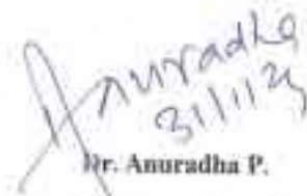 Anuradha
31/1/23
Dr. Anuradha P.